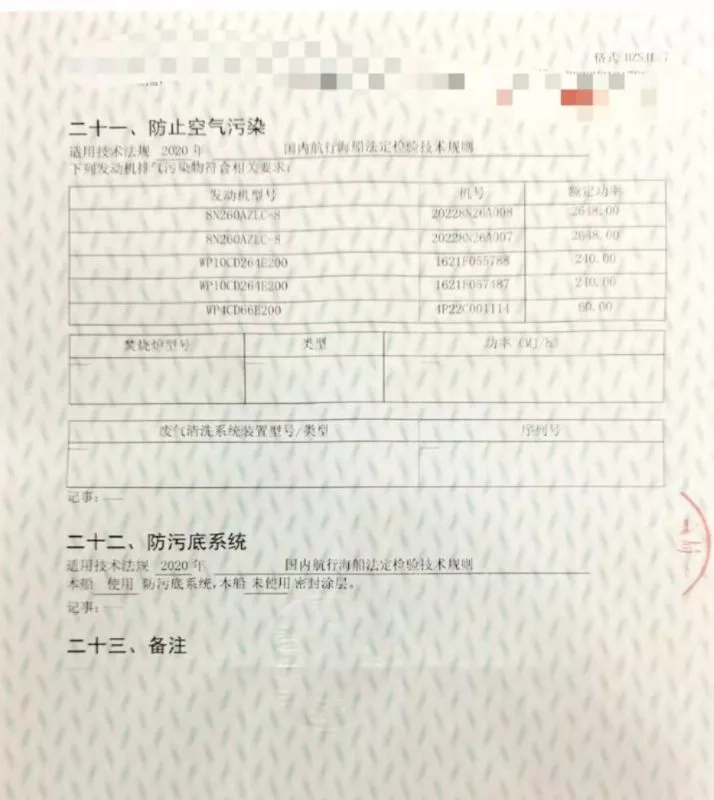 格式
二十一、防止空气污染
适用技术法规 2020 年 国内航行海船法定检验技术规则
下列发动机排气污染物符合相关要求:
发动机型号 机号 额定功率
8N260AZLC-8 20228N26A008 2648.00
8N260AZLC-8 20228N26A007 2648.00
WP10CD264E200 1621F055788 240.00
WP10CD264E200 1621F057487 240.00
WP4CD66E200 4P22C001114 60.00
焚烧炉型号 类型 功率 (MJ/h)
废气清洗系统装置型号/类型 序列号
记事:——
二十二、防污底系统
适用技术法规 2020 年 国内航行海船法定检验技术规则
本船 使用 防污底系统,本船 未使用 密封涂层。
记事:——
二十三、备注